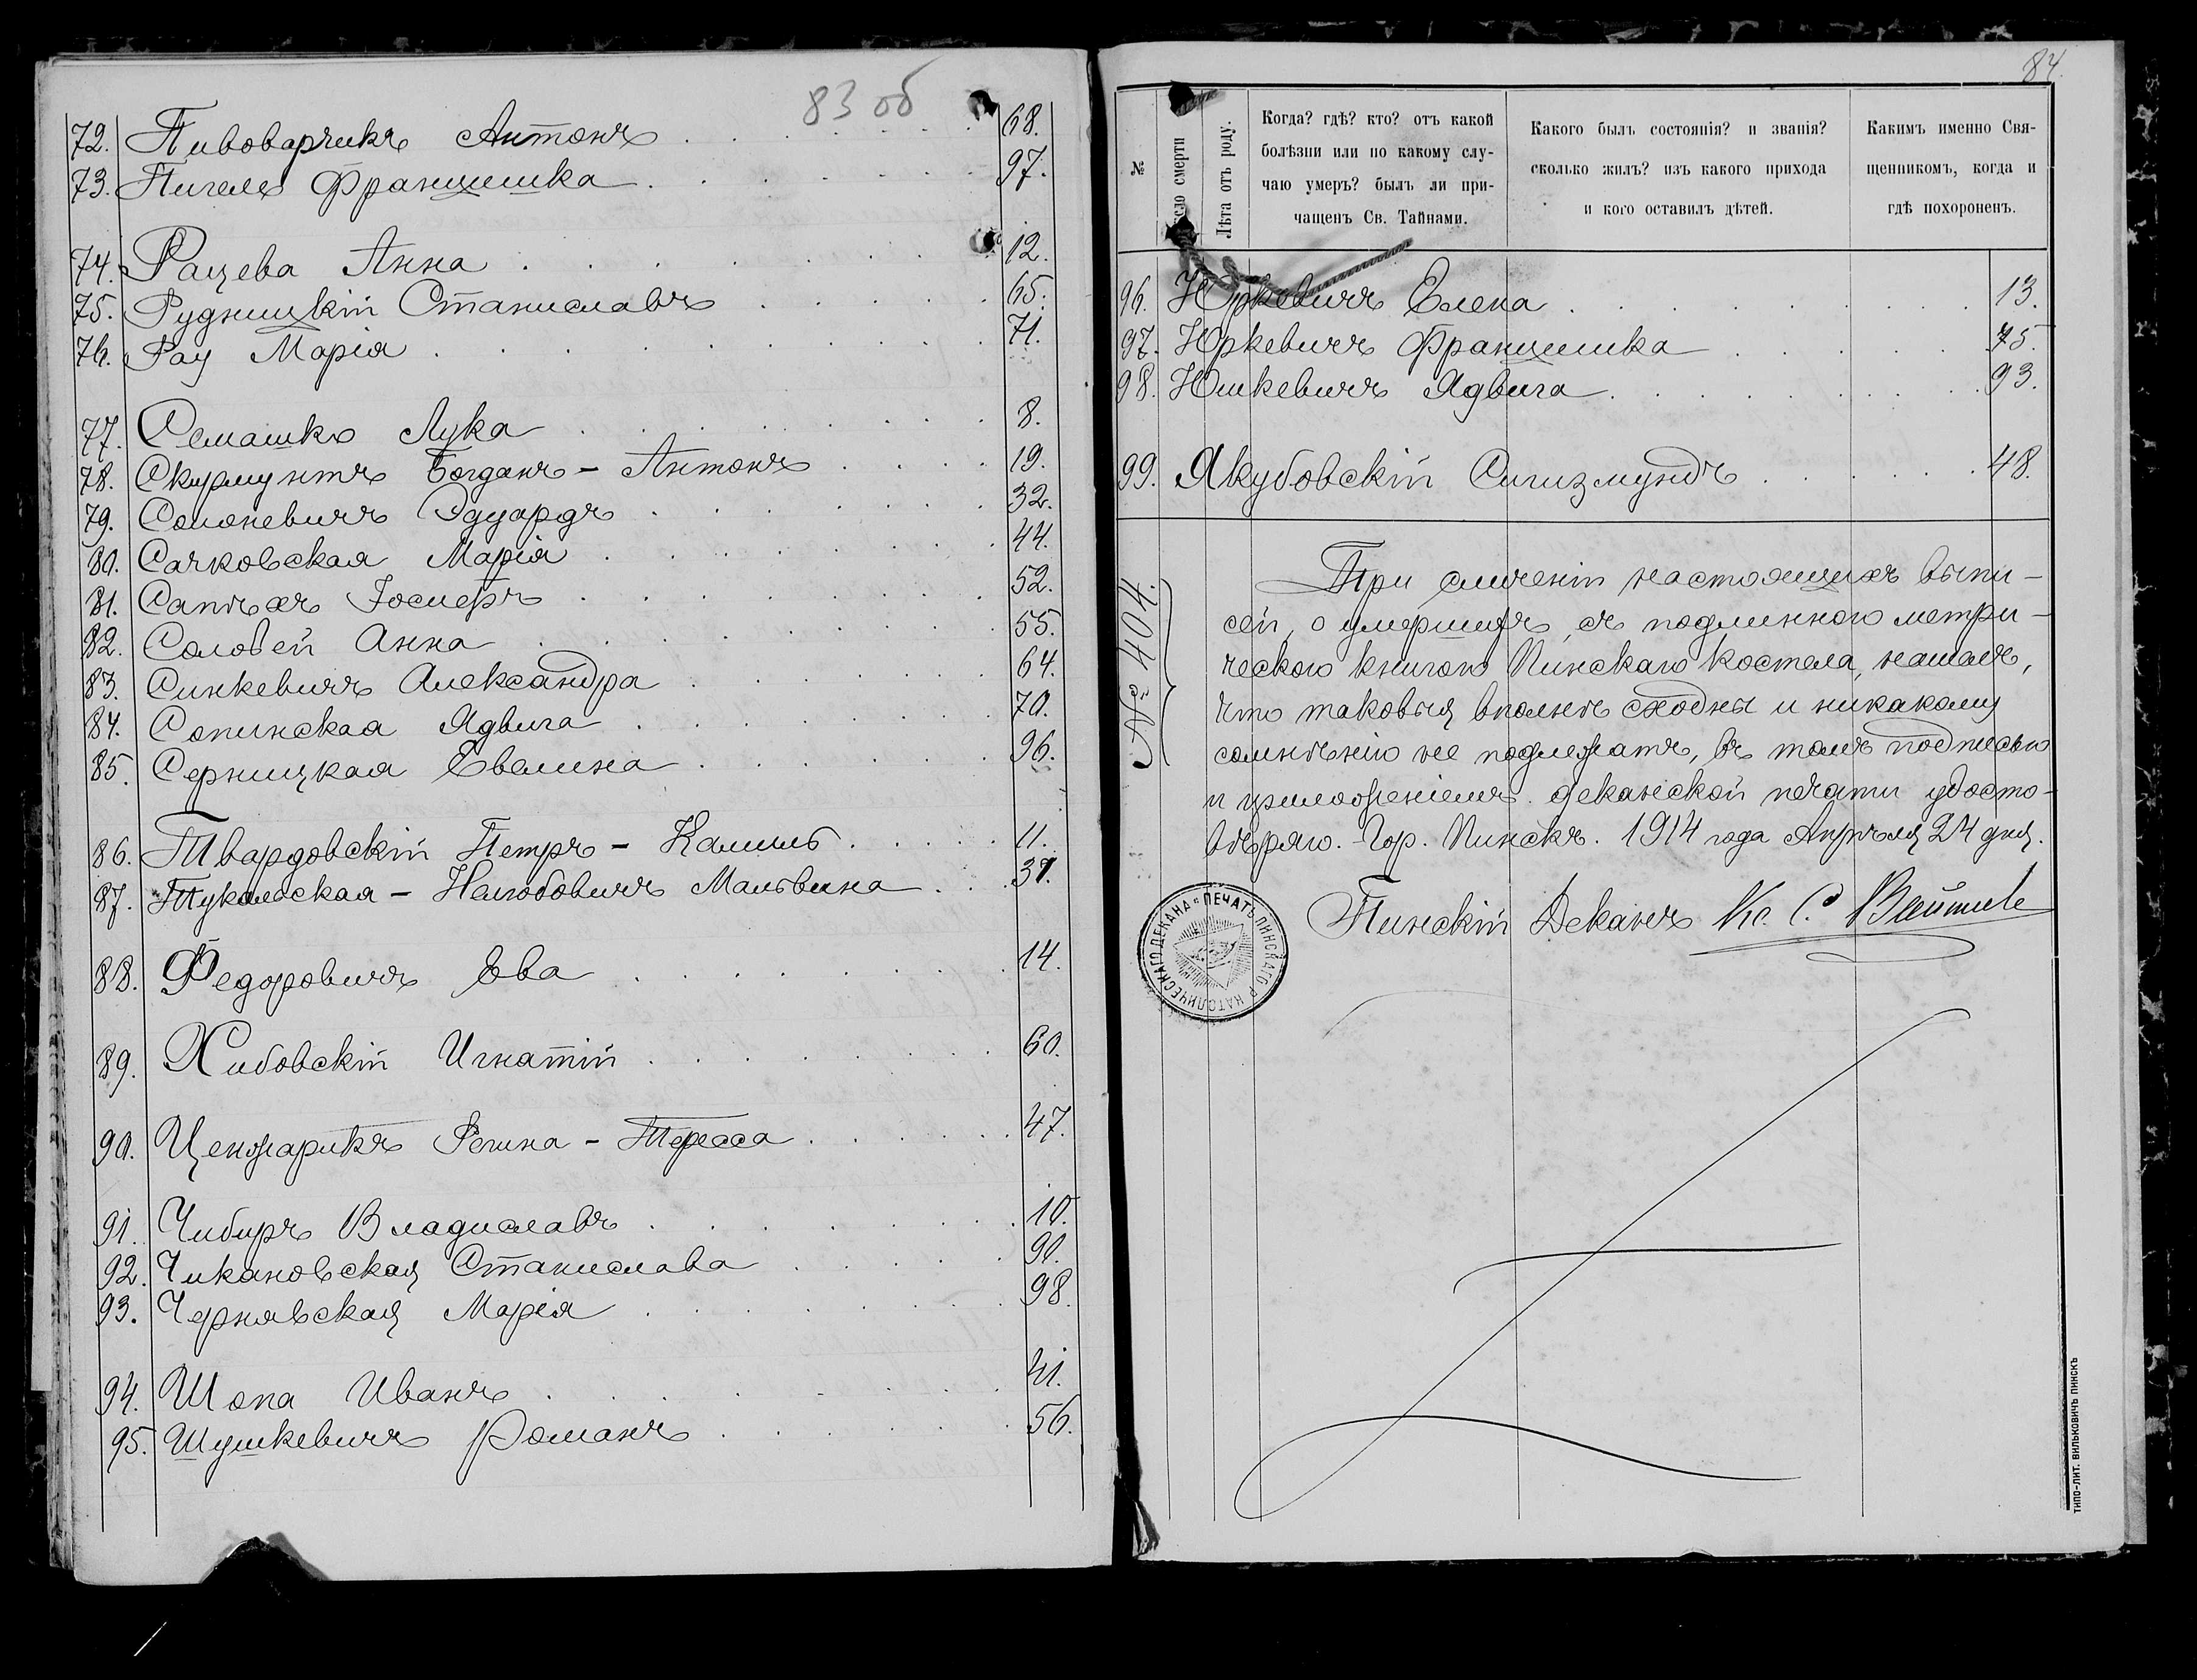 83 об
72. Пивоварчикъ Антонъ . . . . . . 68.
73. Пигель Франциска . . . . . . 97.
74. Рацева Анна . . . . . . 12.
75. Рудницкій Станиславъ . . . . 65.
76. Рау Марія . . . . . . . . 71.
77. Семашко Лука . . . . . . . 8.
78. Скирмунтъ Богданъ - Антонъ . . . . 19.
79. Солоневичъ Эдуардъ . . . . . . 32.
80. Сачковская Марія . . . . . . . 44.
81. Сапѣхъ Іосифъ . . . . . . . 52.
82. Соловей Анна . . . . . . . . 55.
83. Синкевичъ Александра . . . . . 64.
84. Сопинская Ядвига . . . . . . 70.
85. Серницкая Евелина . . . . . 96.
86. Твардовскій Петръ - Камиль . . . . . 11.
87. Тукальская - Нелюбовичъ Мальвина . . . 31.
88. Федоровичъ Ева . . . . . . . 14.
89. Хибовскій Игнатій . . . . . . . 60.
90. Ценжарикъ Регина - Тересса . . . . . . 47.
91. Чибиръ Владиславъ . . . . . . . 10.
92. Чикановская Станислава . . . . . 90.
93. Чернявская Марія . . . . . . . 98.
94. Шопа Иванъ . . . . . . . . 41.
95. Шушкевичъ Романъ . . . . . . 56.
84.
№
Число смерти
Лѣта отъ роду.
Когда? гдѣ? кто? отъ какой
болѣзни или по какому слу-
чаю умеръ? былъ ли при-
чащенъ Св. Тайнами.
Какого былъ состоянія? и званія?
сколько жилъ? изъ какого прихода
и кого оставилъ дѣтей.
Какимъ именно Свя-
щенникомъ, когда и
гдѣ похороненъ.
96. Юркевичъ Елена . . . . . . . 13.
97. Юркевичъ Франциска . . . . . 75.
98. Юшкевичъ Ядвига . . . . . . . 93.
99. Якубовскій Сигизмундъ . . . . . 48.
№ 404.
При сличеніи настоящихъ выпи-
сей, о умершихъ, съ подлинною метри-
ческою книгою Пинскаго костела, нашелъ,
что таковыя вполнѣ сходны и никакому
сомнѣнію не подлежатъ, въ томъ подписью
и приложеніемъ деканской печати удосто-
вѣряю. Гор. Пинскъ. 1914 года Апрѣля 24 дня.
Пинскій Деканъ Кс. С.
ПЕЧАТЬ ПИНСКАГО Р КАТОЛИЧЕСКАГО ДЕКАНА
ТИПО-ЛИТ. ВИЛЬКОВИЧЪ ПИНСКЪ